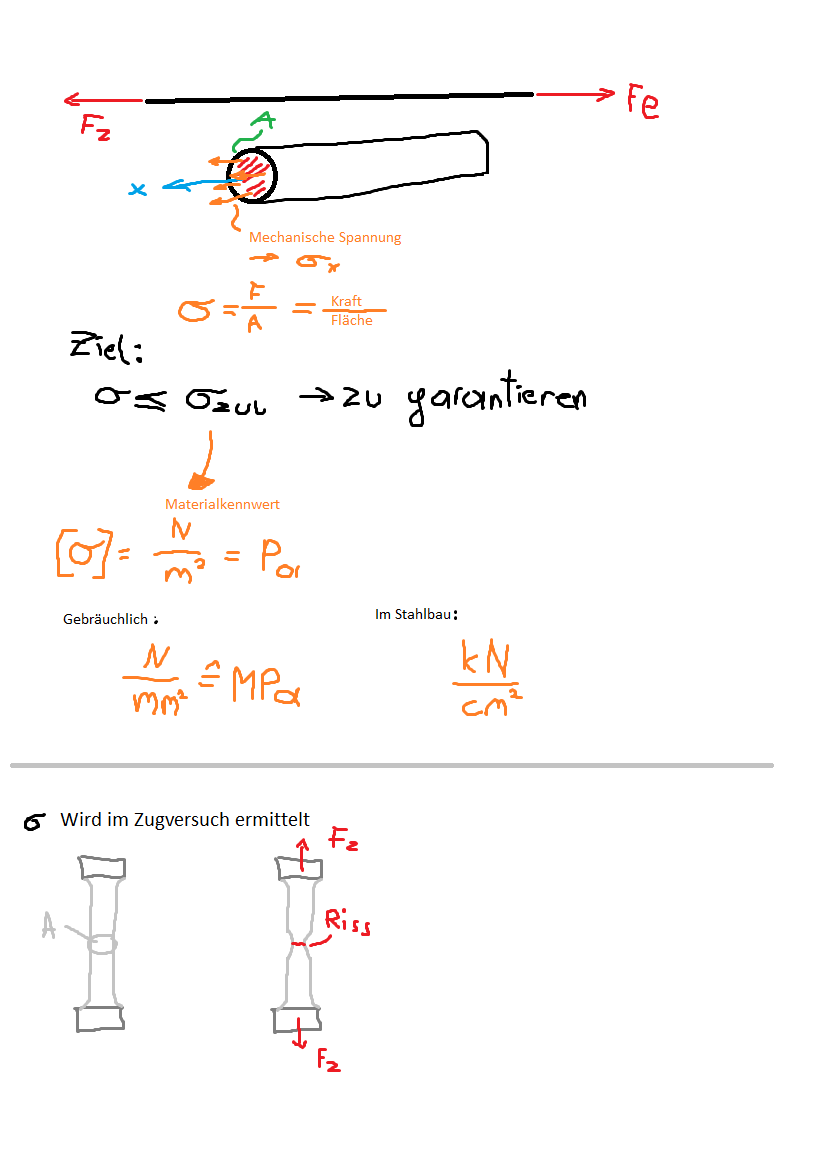 F₂ Fe
A
x
Mechanische Spannung
→ σₓ
σ = F/A = Kraft/Fläche
Ziel:
σ ≤ σzul → zu garantieren
Materialkennwert
[σ] = N/m² = Pa
Gebräuchlich : Im Stahlbau:
N/mm² ≙ MPa kN/cm²
σ Wird im Zugversuch ermittelt
Fz
A Riss
Fz